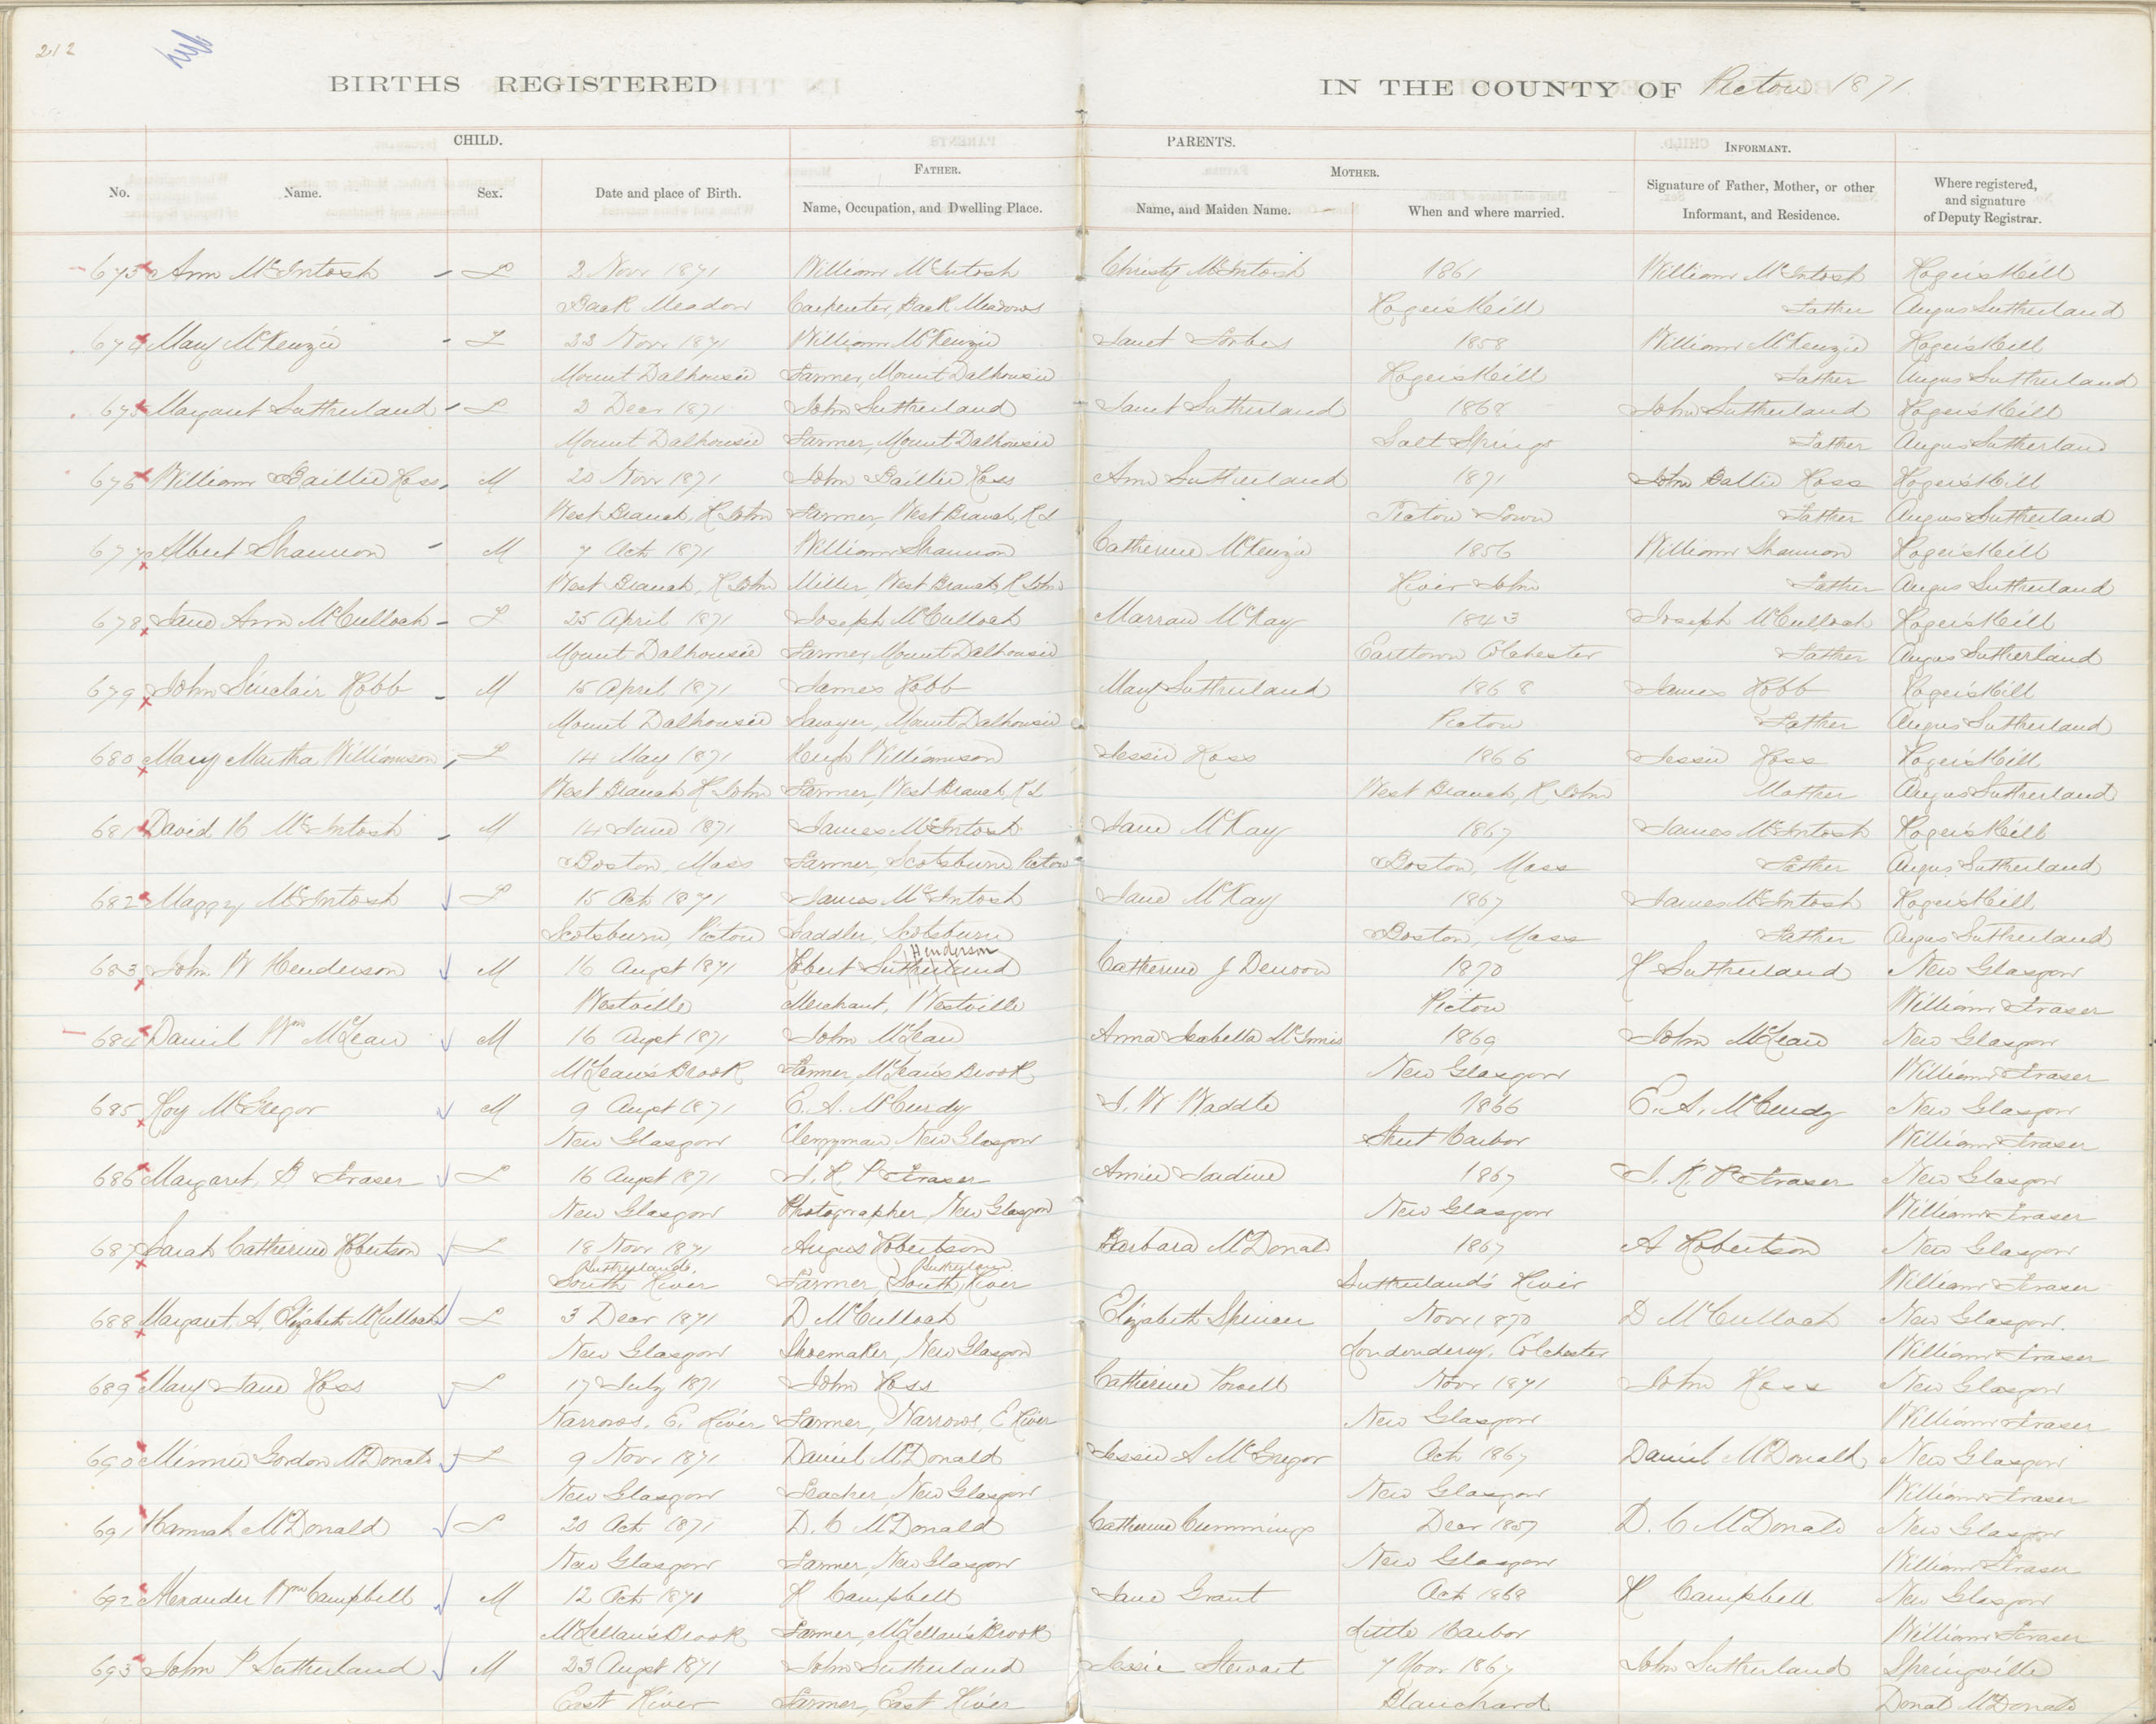 212
BIRTHS REGISTERED IN THE COUNTY OF Pictou 1871
CHILD. PARENTS. INFORMANT.
FATHER. MOTHER.
No. Name. Sex. Date and place of Birth. Name, Occupation, and Dwelling Place. Name, and Maiden Name. When and where married. Signature of Father, Mother, or other Informant, and Residence. Where registered, and signature of Deputy Registrar.
673 Ann McIntosh F 2 Novr 1871 William McIntosh Christy McIntosh 1861 William McIntosh Rogers Hill
Back Meadow Carpenter, Back Meadows Rogers Hill Father Angus Sutherland
674 Mary McKenzie F 22 Novr 1871 William McKenzie Janet Forbes 1858 William McKenzie Rogers Hill
Mount Dalhousie Farmer, Mount Dalhousie Rogers Hill Father Angus Sutherland
675 Margaret Sutherland F 2 Decr 1871 John Sutherland Janet Sutherland 1868 John Sutherland Rogers Hill
Mount Dalhousie Farmer, Mount Dalhousie Salt Springs Father Angus Sutherland
676 William Baillie Ross M 20 Novr 1871 John Baillie Ross Ann Sutherland 1871 John Ballie Ross Rogers Hill
West Branch, R John Farmer, West Branch, R J Pictou Town Father Angus Sutherland
677 Albert Shannon M 7 Oct 1871 William Shannon Catherine McKenzie 1856 William Shannon Rogers Hill
West Branch, R John Miller, West Branch, R John River John Father Angus Sutherland
678 Jane Ann McCulloch F 25 April 1871 Joseph McCulloch Marran McKay 1843 Joseph McCulloch Rogers Hill
Mount Dalhousie Farmer, Mount Dalhousie Earltown Colchester Father Angus Sutherland
679 John Sinclair Robb M 15 April 1871 James Robb Mary Sutherland 1868 James Robb Rogers Hill
Mount Dalhousie Sawyer, Mount Dalhousie Pictou Father Angus Sutherland
680 Mary Martha Williamson F 14 May 1871 Hugh Williamson Jessie Ross 1866 Jessie Ross Rogers Hill
West Branch R John Farmer, West Branch, R J West Branch, R John Mother Angus Sutherland
681 David H McIntosh M 14 June 1871 James McIntosh Jane McKay 1867 James McIntosh Rogers Hill
Boston, Mass Farmer, Scotsburn Pictou Boston, Mass Father Angus Sutherland
682 Maggy McIntosh F 15 Oct 1871 James McIntosh Jane McKay 1867 James McIntosh Rogers Hill
Scotsburn, Pictou Saddler, Scotsburn Boston, Mass Father Angus Sutherland
Henderson
683 John W Henderson M 16 Augst 1871 Robert Sutherland Catherine J Denoon 1870 R Sutherland New Glasgow
Westville Merchant, Westville Pictou William Fraser
684 Daniel Wm McLean M 16 Augst 1871 John McLean Anna Isabella McInnis 1869 John McLean New Glasgow
McLean's Brook Farmer, McLean's Brook New Glasgow William Fraser
685 Roy McGregor M 9 Augst 1871 E. A. McCurdy J. W Waddle 1866 E. A. McCurdy New Glasgow
New Glasgow Clergyman New Glasgow Sheet Harbor William Fraser
686 Margaret B Fraser F 16 Augst 1871 J. R. P Fraser Annie Jardine 1867 J. R. P Fraser New Glasgow
New Glasgow Photographer, New Glasgow New Glasgow William Fraser
687 Sarah Catherine Robertson F 18 Novr 1871 Angus Robertson Barbara McDonald 1867 A Robertson New Glasgow
Sutherland's Sutherland
South River Farmer, South River Sutherland's River William Fraser
688 Margaret A. Elizabeth McCulloch F 3 Decr 1871 D McCulloch Elizabeth Spencer Novr 1870 D McCulloch New Glasgow.
New Glasgow Shoemaker, New Glasgow Londonderry, Colchester William Fraser
689 Mary Jane Ross F 17 July 1871 John Ross Catherine Powell Novr 1871 John Ross New Glasgow
Narrows, E. River Farmer, Narrows, E River New Glasgow William Fraser
690 Minnie Gordon McDonald F 9 Novr 1871 Daniel McDonald Jessie A McGregor Oct 1867 Daniel McDonald New Glasgow
New Glasgow Teacher, New Glasgow New Glasgow William Fraser
691 Hannah McDonald F 20 Oct 1871 D. C McDonald Catherine Cummings Decr 1857 D. C McDonald New Glasgow
New Glasgow Farmer, New Glasgow New Glasgow William Fraser
692 Alexander Wm Campbell M 12 Oct 1871 R Campbell Jane Grant Oct 1868 R Campbell New Glasgow
McLellan's Brook Farmer, McLellan's Brook Little Harbor William Fraser
693 John P Sutherland M 23 Augst 1871 John Sutherland Jessie Stewart 7 Novr 1867 John Sutherland Springville
East River Farmer, East River Blanchard Donal McDonald